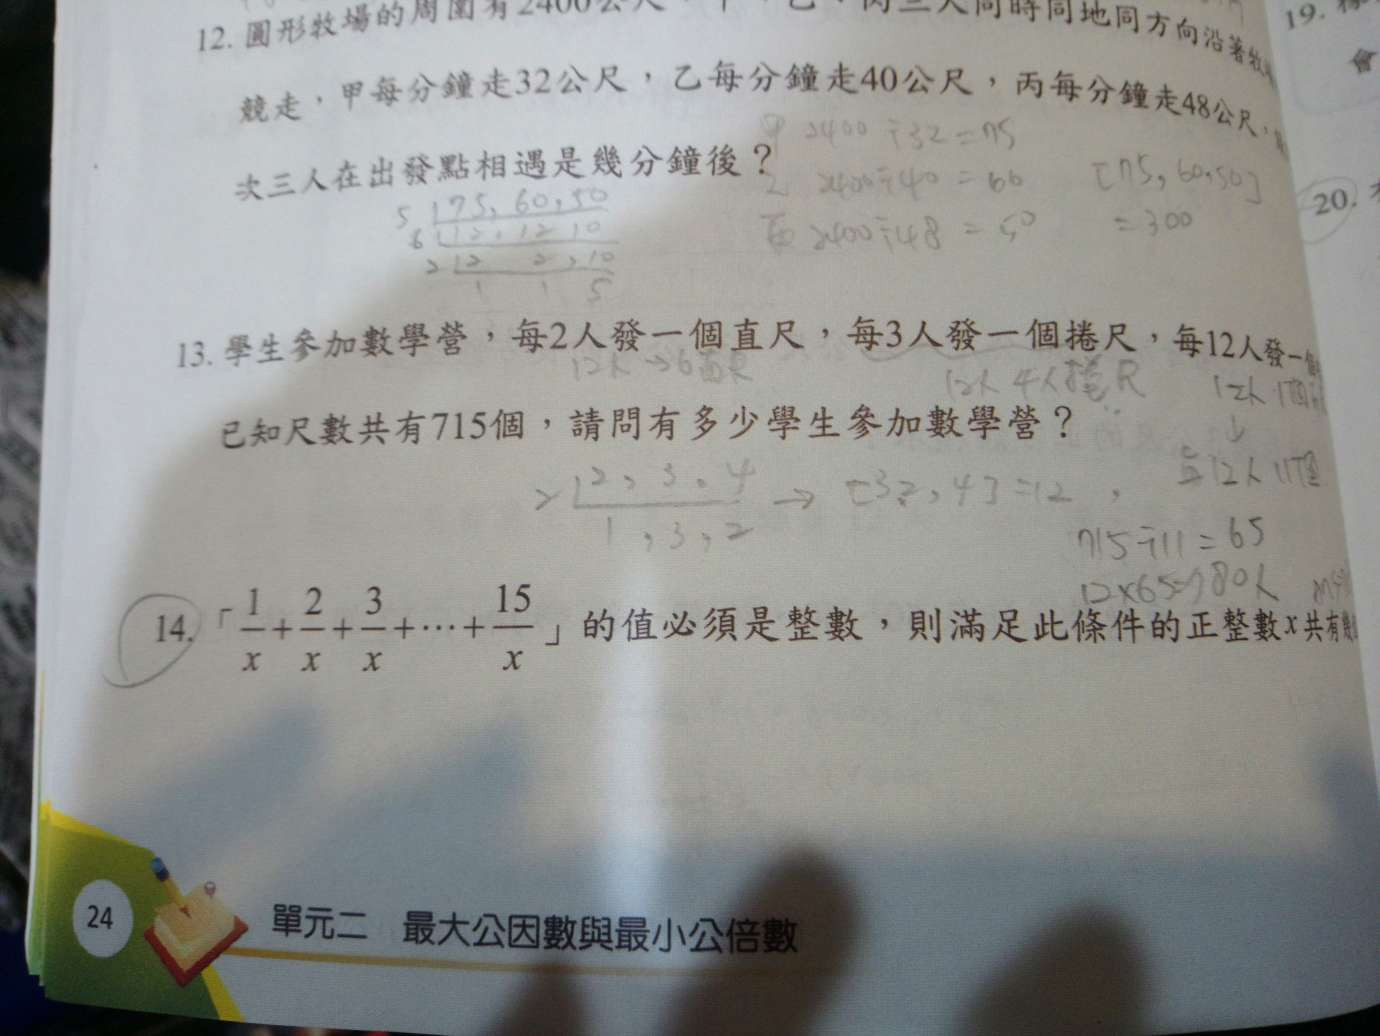 12. 圓形牧場的周圍有2400公尺，甲，乙，丙三人同時同地同方向沿著牧
競走，甲每分鐘走32公尺，乙每分鐘走40公尺，丙每分鐘走48公尺，
次三人在出發點相遇是幾分鐘後？
甲 2400÷32=75
乙 2400÷40=60
丙 2400÷48=50
[75,60,50]
=300
5 75, 60, 50
6 12, 10
2 2, 10
1 1 5
13. 學生參加數學營，每2人發一個直尺，每3人發一個捲尺，每12人發一個
12人→6直尺
12人 4人捲尺
12人 1個
已知尺數共有715個，請問有多少學生參加數學營？
↓
每12人 11個
2 2, 3, 4
1, 3, 2
→ [32, 4]=12,
715÷11=65
12×65=780人
14. 「1/x+2/x+3/x+⋯+15/x」的值必須是整數，則滿足此條件的正整數x共有幾
24
單元二 最大公因數與最小公倍數
19.
會
20.